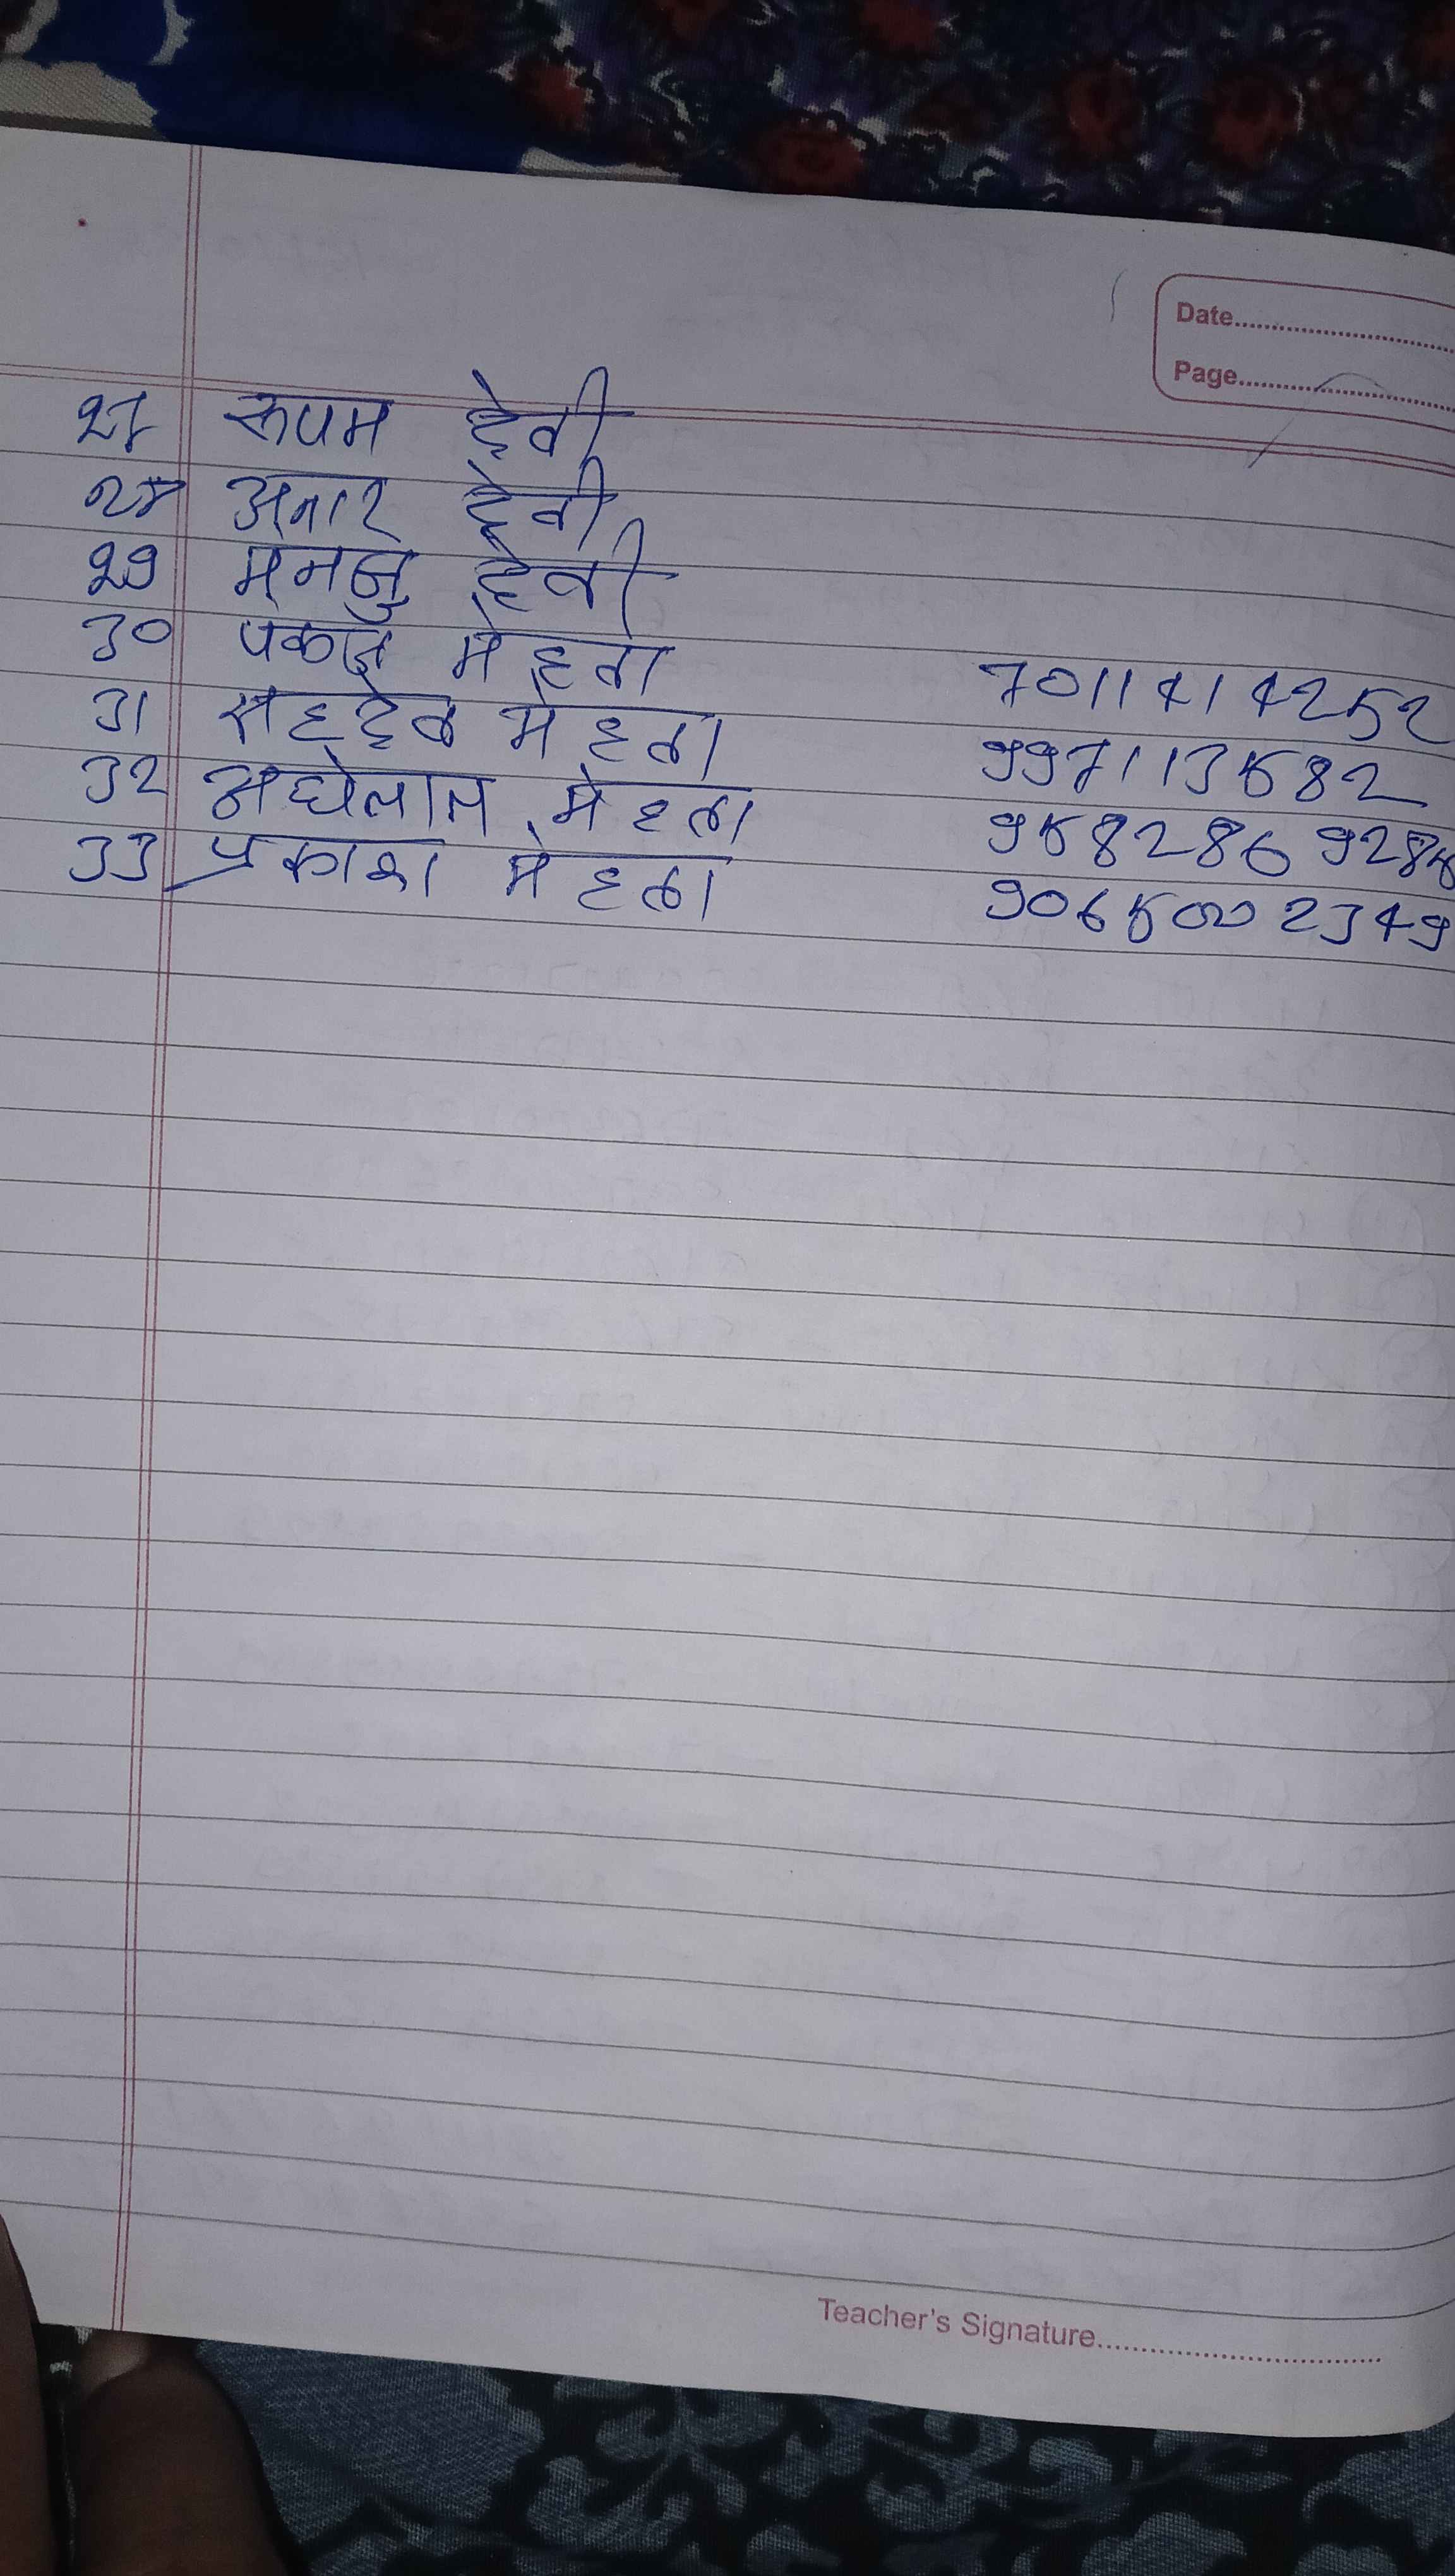 Date
Page
27 रूपम देवी
28 अनार देवी
29 मनजु देवी
30 पकज मेहता 7011414252
31 सहदेव मेहता 997113582
32 मेहता 9582869285
33 प्रकाश मेहता 9065002349
Teacher's Signature